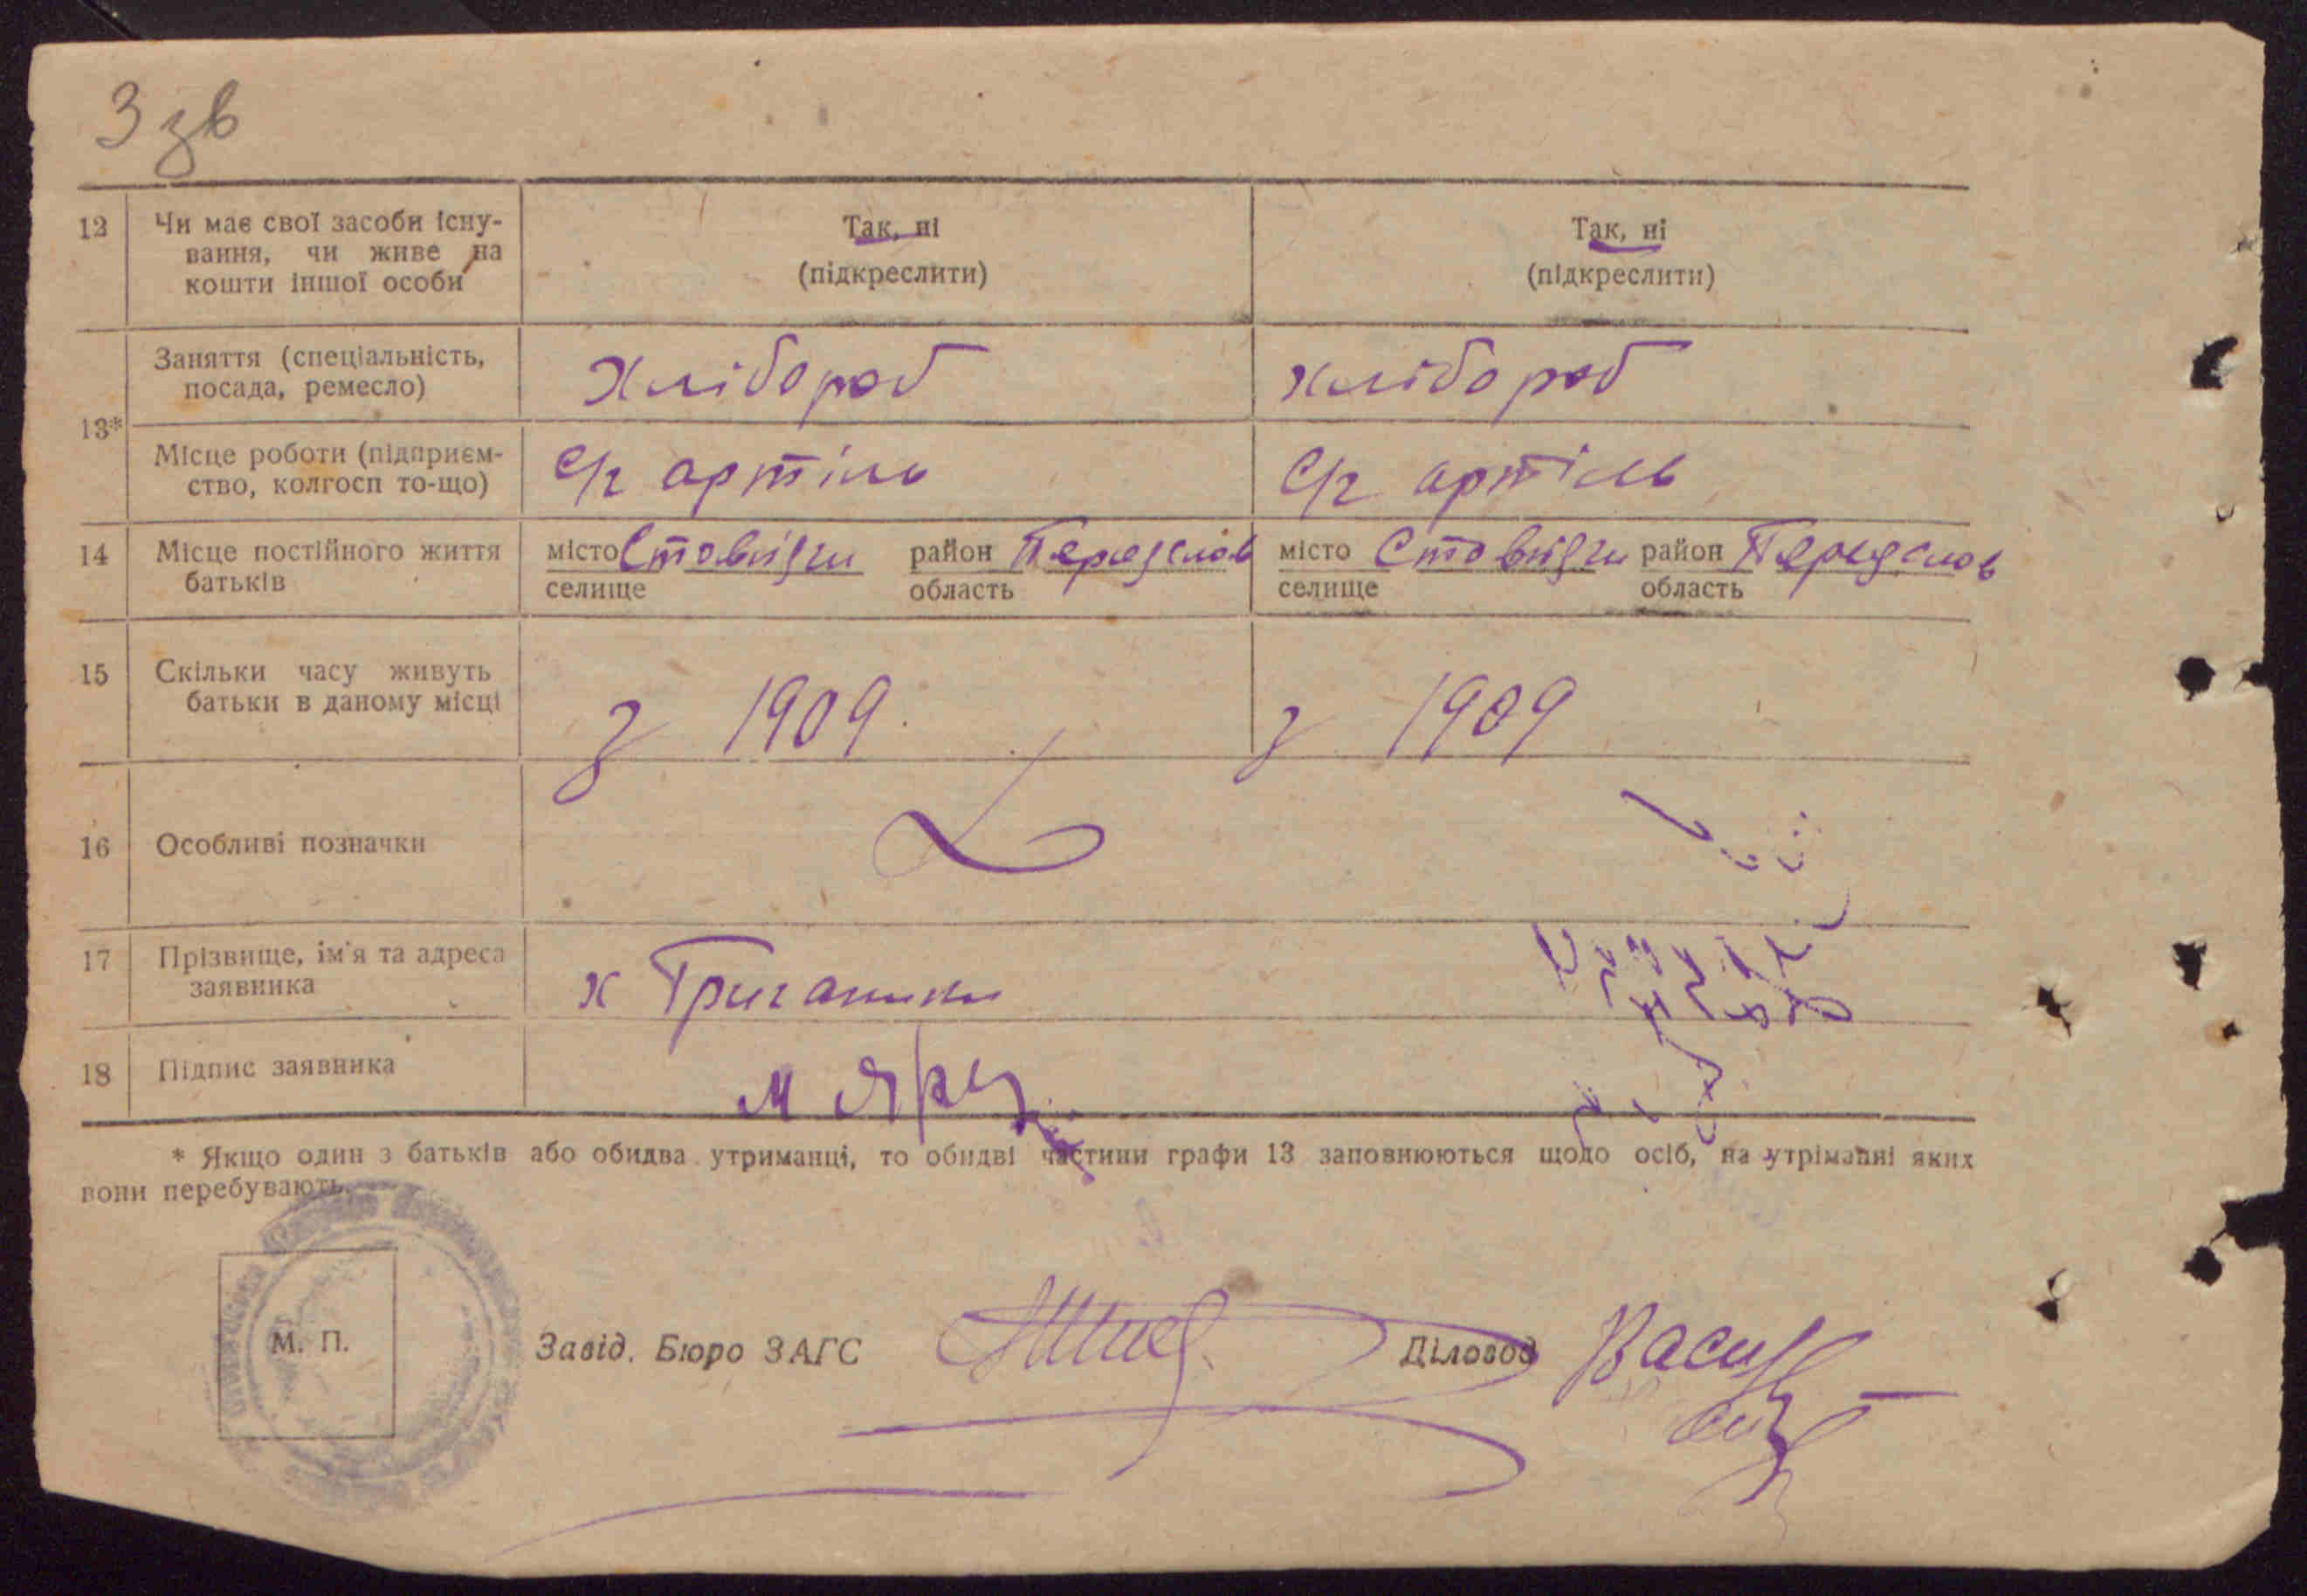 3 зв
12 Чи має свої засоби існу- Так, ні Так, ні
вання, чи живе на (підкреслити) (підкреслити)
кошти іншої особи
13* Заняття (спеціальність, Хлібороб хлібороб
посада, ремесло)
Місце роботи (підприєм- с/г артіль с/г артіль
ство, колгосп то-що)
14 Місце постійного життя місто район місто район
батьків селище область селище область
15 Скільки часу живуть з 1909 з 1909
батьки в даному місці
16 Особливі позначки
17 Прізвище, ім'я та адреса х
заявника
18 Підпис заявника
* Якщо один з батьків або обидва утриманці, то обидві частини графи 13 заповнюються щодо осіб, на утріманні яких
вони перебувають.
М. П. Завід. Бюро ЗАГС Діловод